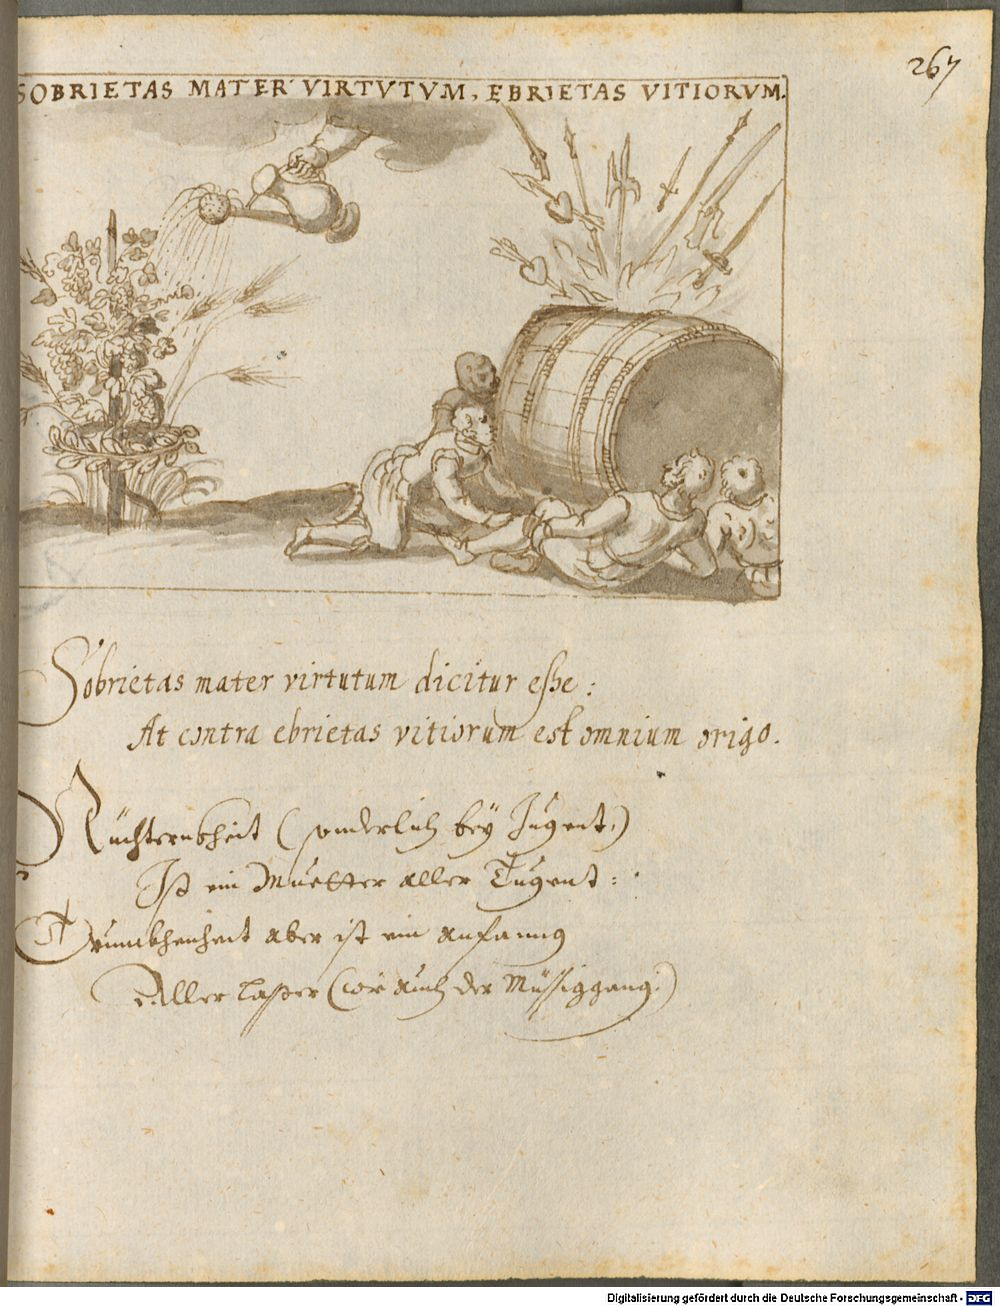 267
SOBRIETAS MATER VIRTVTVM, EBRIETAS VITIORVM.
Sobrietas mater virtutum dicitur esse :
At contra ebrietas vitiorum est omnium origo.
Nüchternkheit (sonderlich bey Jugent,)
Ist ein Muetter aller Tugent :
Trunckhenheit aber ist ein anfanng
Aller laster (wie auch der Müssiggang.)
Digitalisierung gefördert durch die Deutsche Forschungsgemeinschaft - DFG